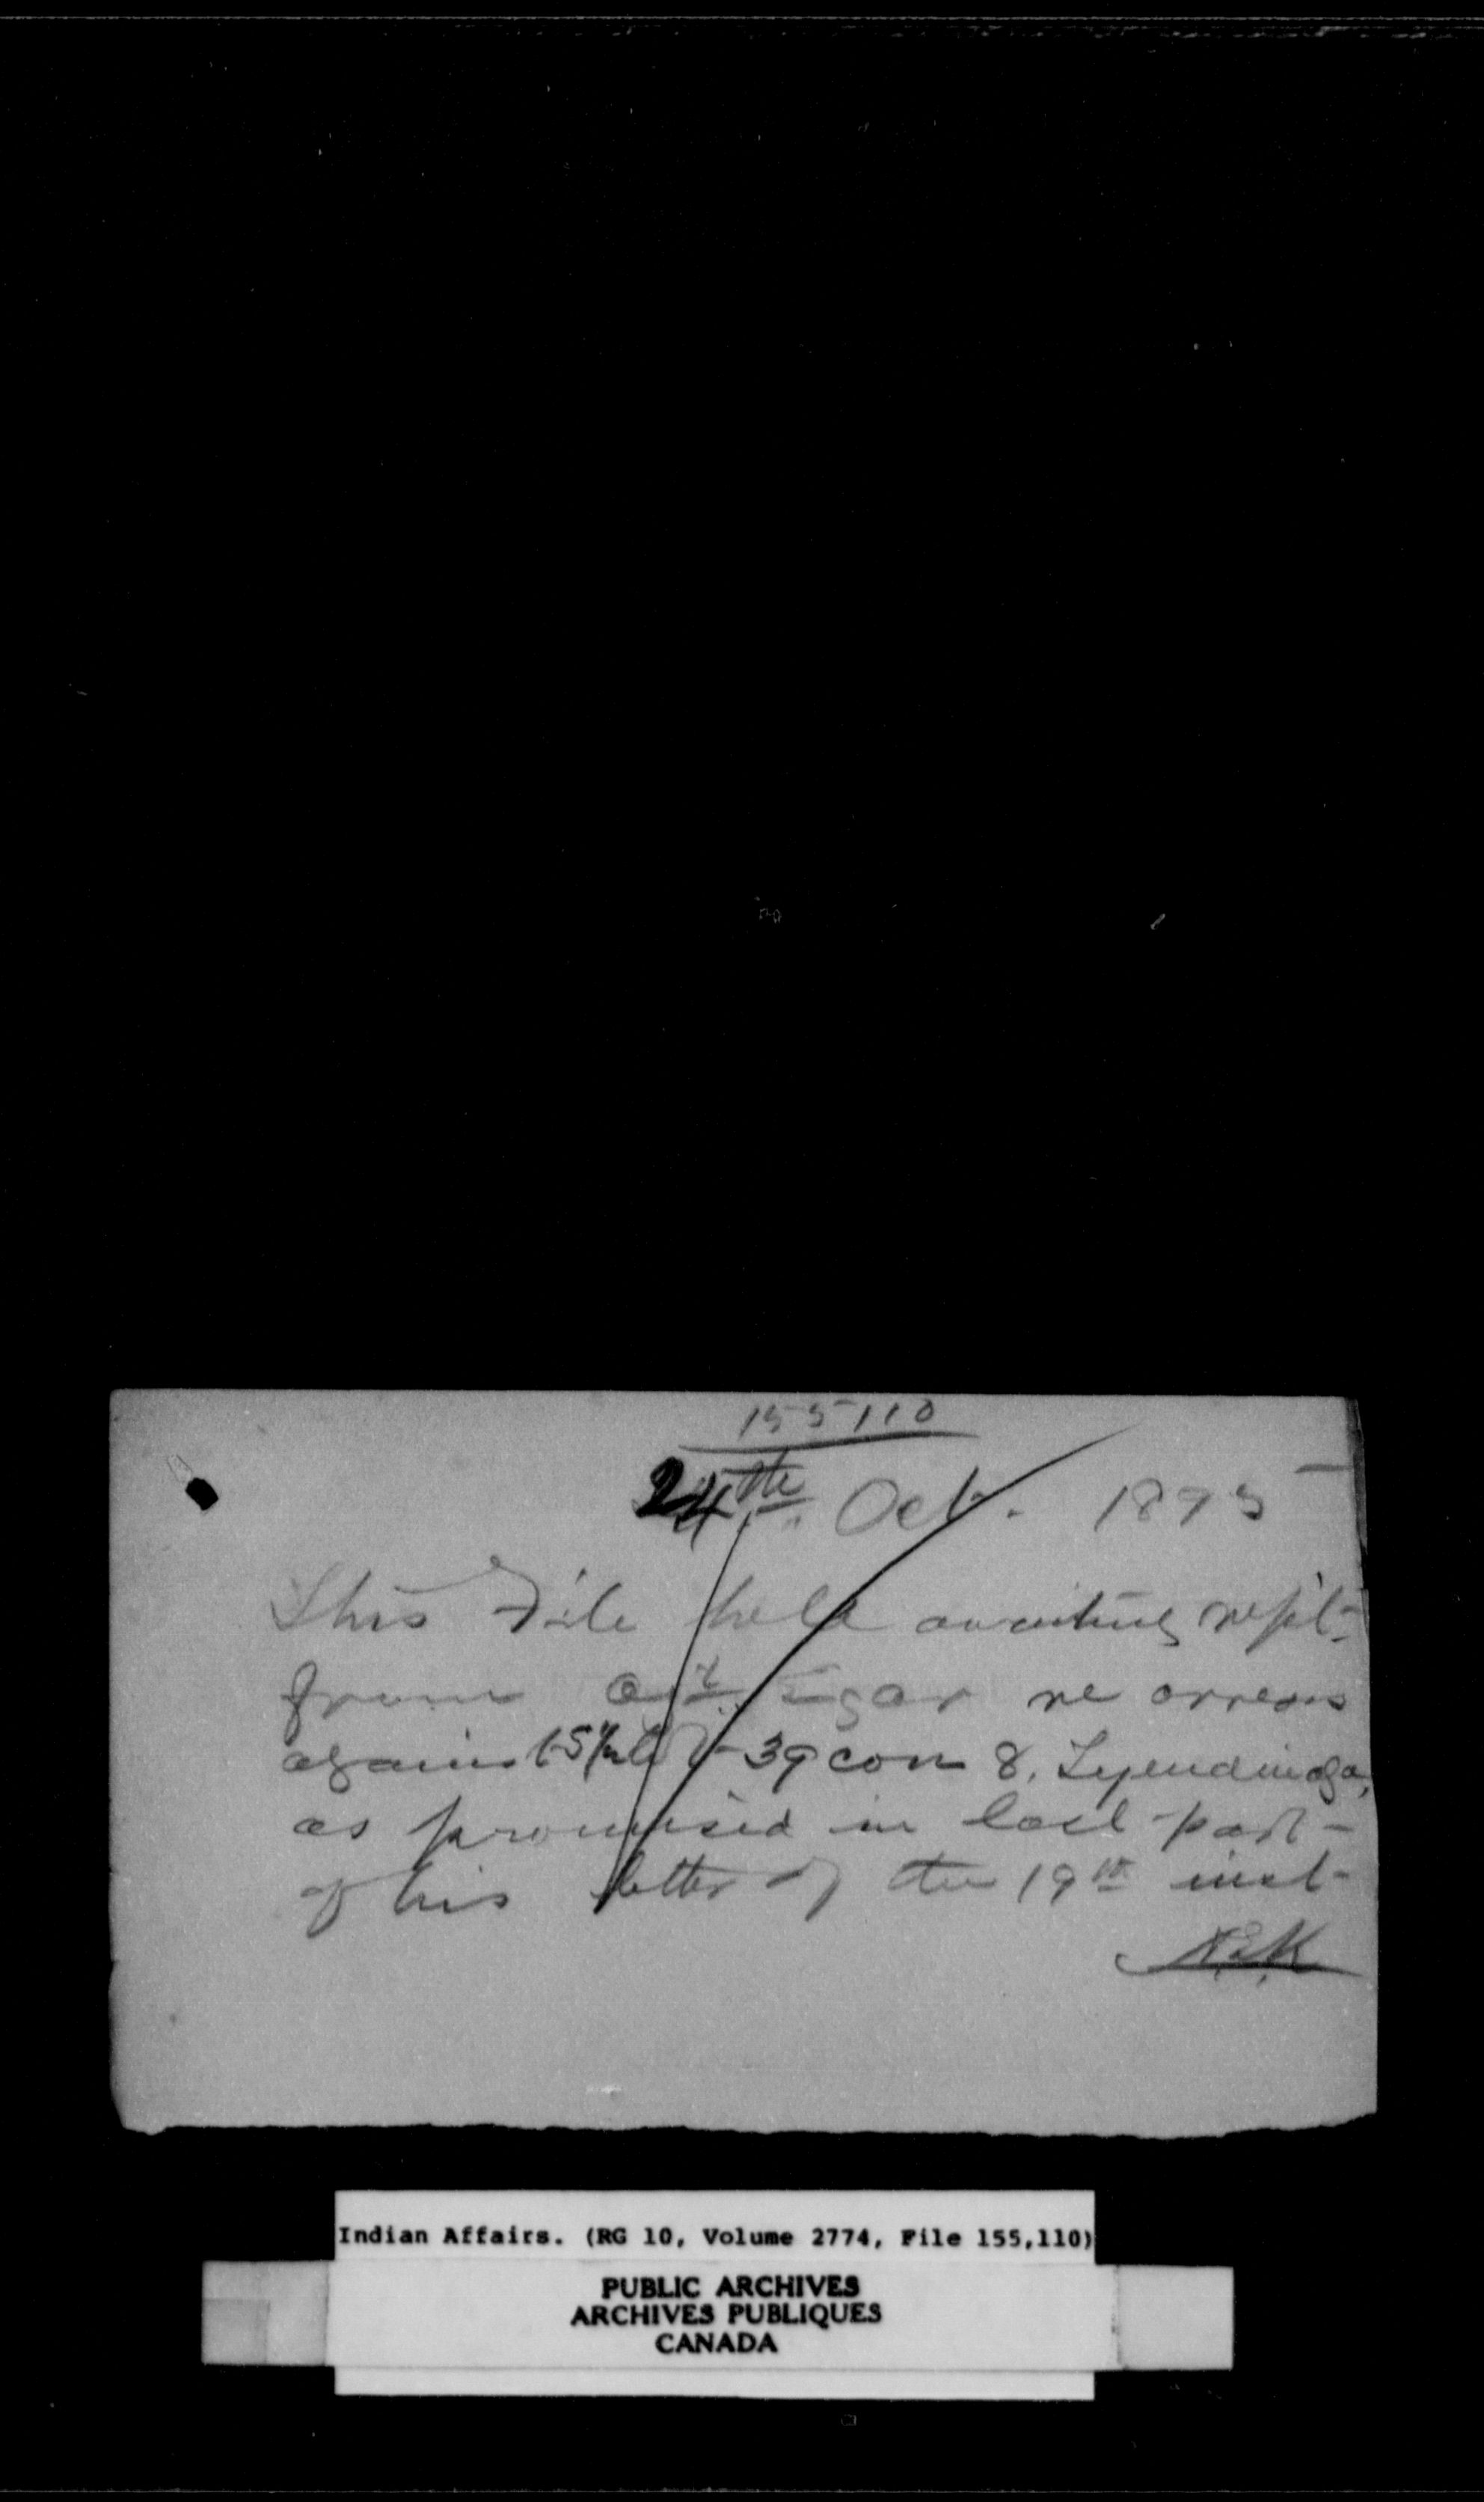 155110
24th Oct. 1895
This File held awaiting rept.
from Agt. Egar re arrears
against Lot 39 con 8, Tyendinaga,
as promised in last part
of his letter of the 19th inst
Indian Affairs. (RG 10, Volume 2774, File 155,110)
PUBLIC ARCHIVES
ARCHIVES PUBLIQUES
CANADA